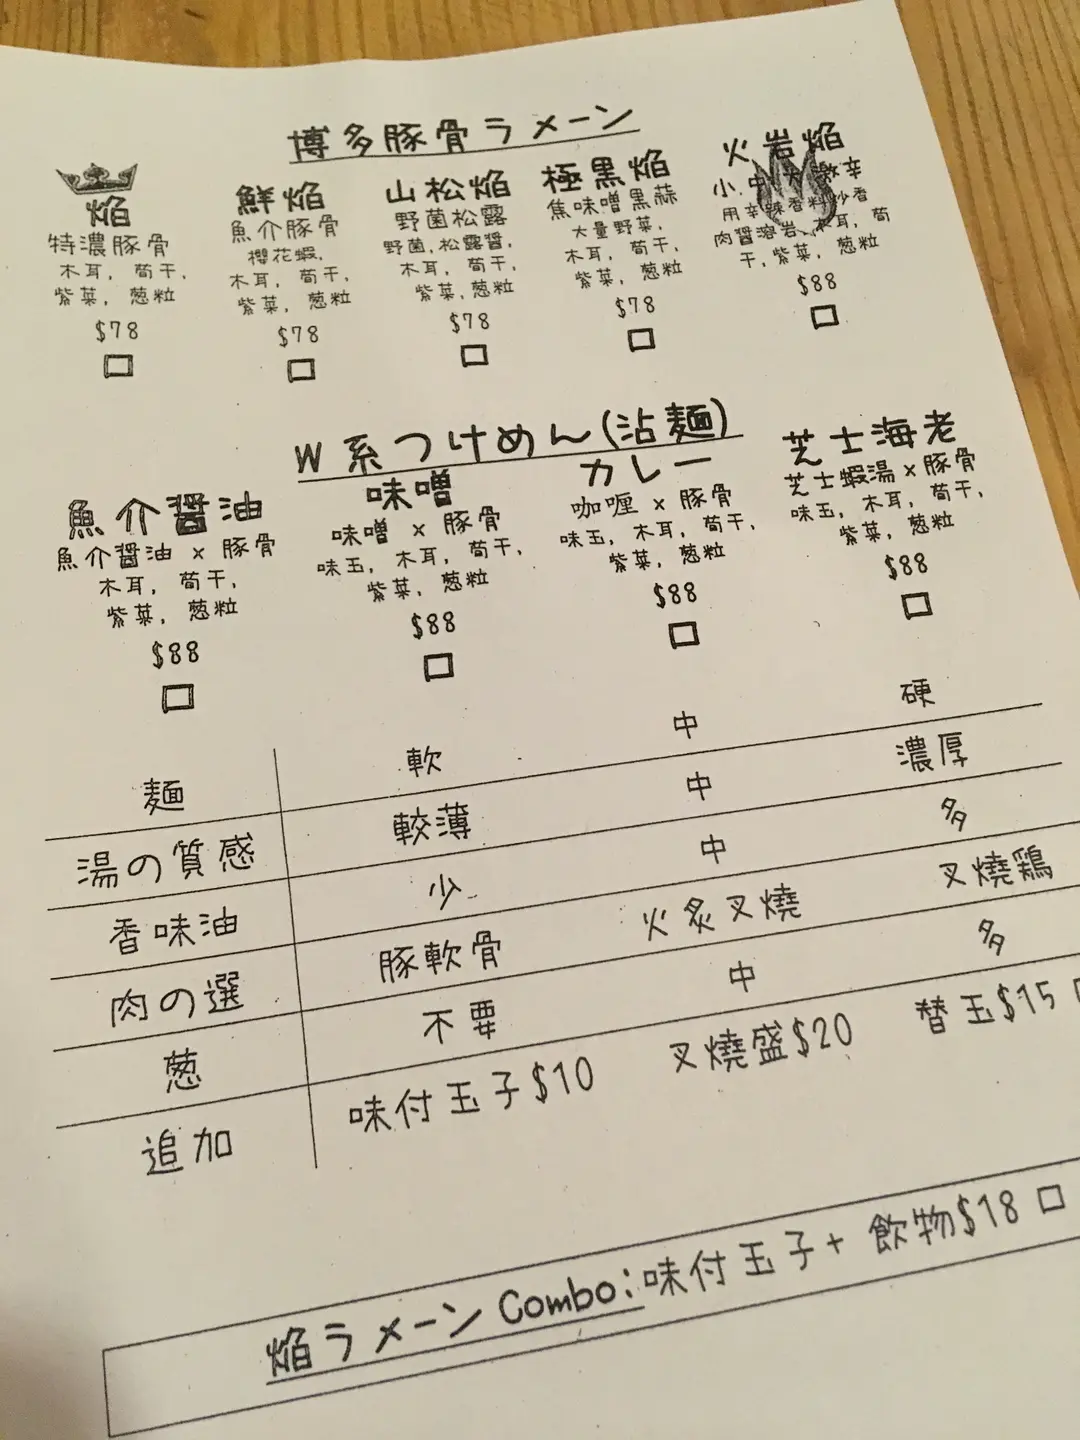 博多豚骨ラーメン
焔
特濃豚骨
木耳, 荀干,
紫菜, 葱粒
$78
鮮焔
魚介豚骨
櫻花蝦,
木耳, 荀干,
紫菜, 葱粒
$78
山松焔
野菌松露
野菌,松露醤,
木耳, 荀干,
紫菜, 葱粒
$78
極黒焔
焦味噌黒蒜
大量野菜,
木耳, 荀干,
紫菜, 葱粒
$78
火岩焔
小.中.大.激辛
用辛辣香料炒香
肉醤溶岩、木耳, 荀
干, 紫菜, 葱粒
$88
W系つけめん(沾麺)
魚介醤油
魚介醤油 x 豚骨
木耳, 荀干,
紫菜, 葱粒
$88
味噌
味噌 x 豚骨
味玉, 木耳, 荀干,
紫菜, 葱粒
$88
カレー
咖喱 x 豚骨
味玉, 木耳, 荀干,
紫菜, 葱粒
$88
芝士海老
芝士蝦湯 x 豚骨
味玉, 木耳, 荀干,
紫菜, 葱粒
$88
麺 軟 中 硬
湯の質感 較薄 中 濃厚
香味油 少 中 多
肉の選 豚軟骨 火炙叉燒 叉燒鶏
葱 不要 中 多
追加 味付玉子$10 叉燒盛$20 替玉$15
焔ラーメン Combo:味付玉子+ 飲物$18